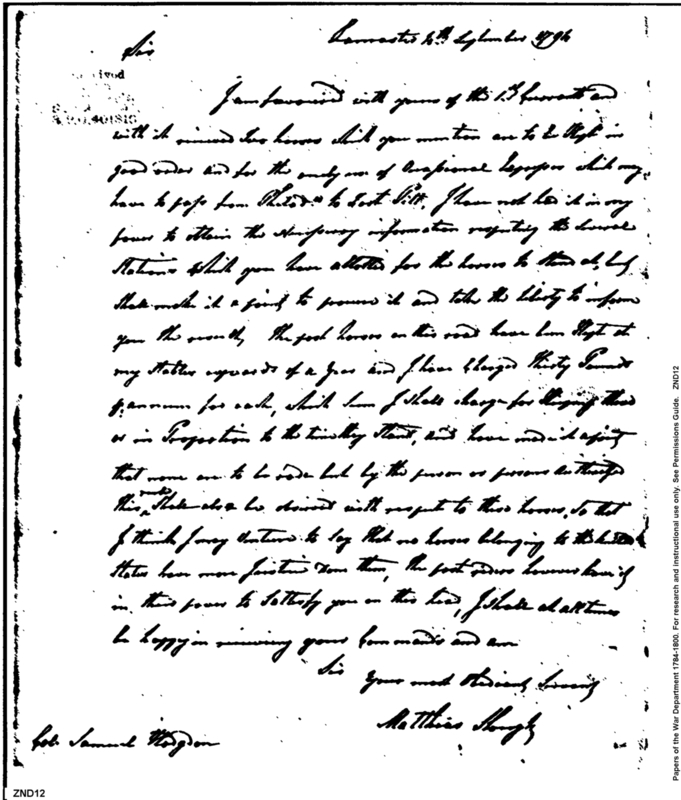 Lancaster 4th September 1794
Sir
I am favoured with yours of the 1st Currant and
with it received two horses which you mention are to be Kept in
good order and for the only use of Occasional Expresses which may
have to pass from Philada to Fort Pitt, I have not had it in my
power to obtain the Necessary information respecting the several
Stations which you have allotted for the horses to stand at, but
shall make it a point to procure it and take the liberty to inform
you the result, The post horses on this road have been Kept at
my Stables upwards of a Year and I have Charged thirty Pounds
annum for each, which sum I shall charge for Keeping these
or in Proportion to the time they stand, and have made it a point
that none are to be rode but by the person or persons
this shall also be observed with respect to these horses, So that
I think I may venture to Say that no horses belonging to the United
States have more Justice done them, the post riders however have it
in their power to Sattisfy you on this head, I shall at all times
be happy in receiving your Commands and am
Sir
Your most Obedient Servant
Matthias Slough
Col. Samuel Hodgdon
ZND12
Papers of the War Department 1784-1800. For research and instructional use only. See Permissions Guide. ZND12